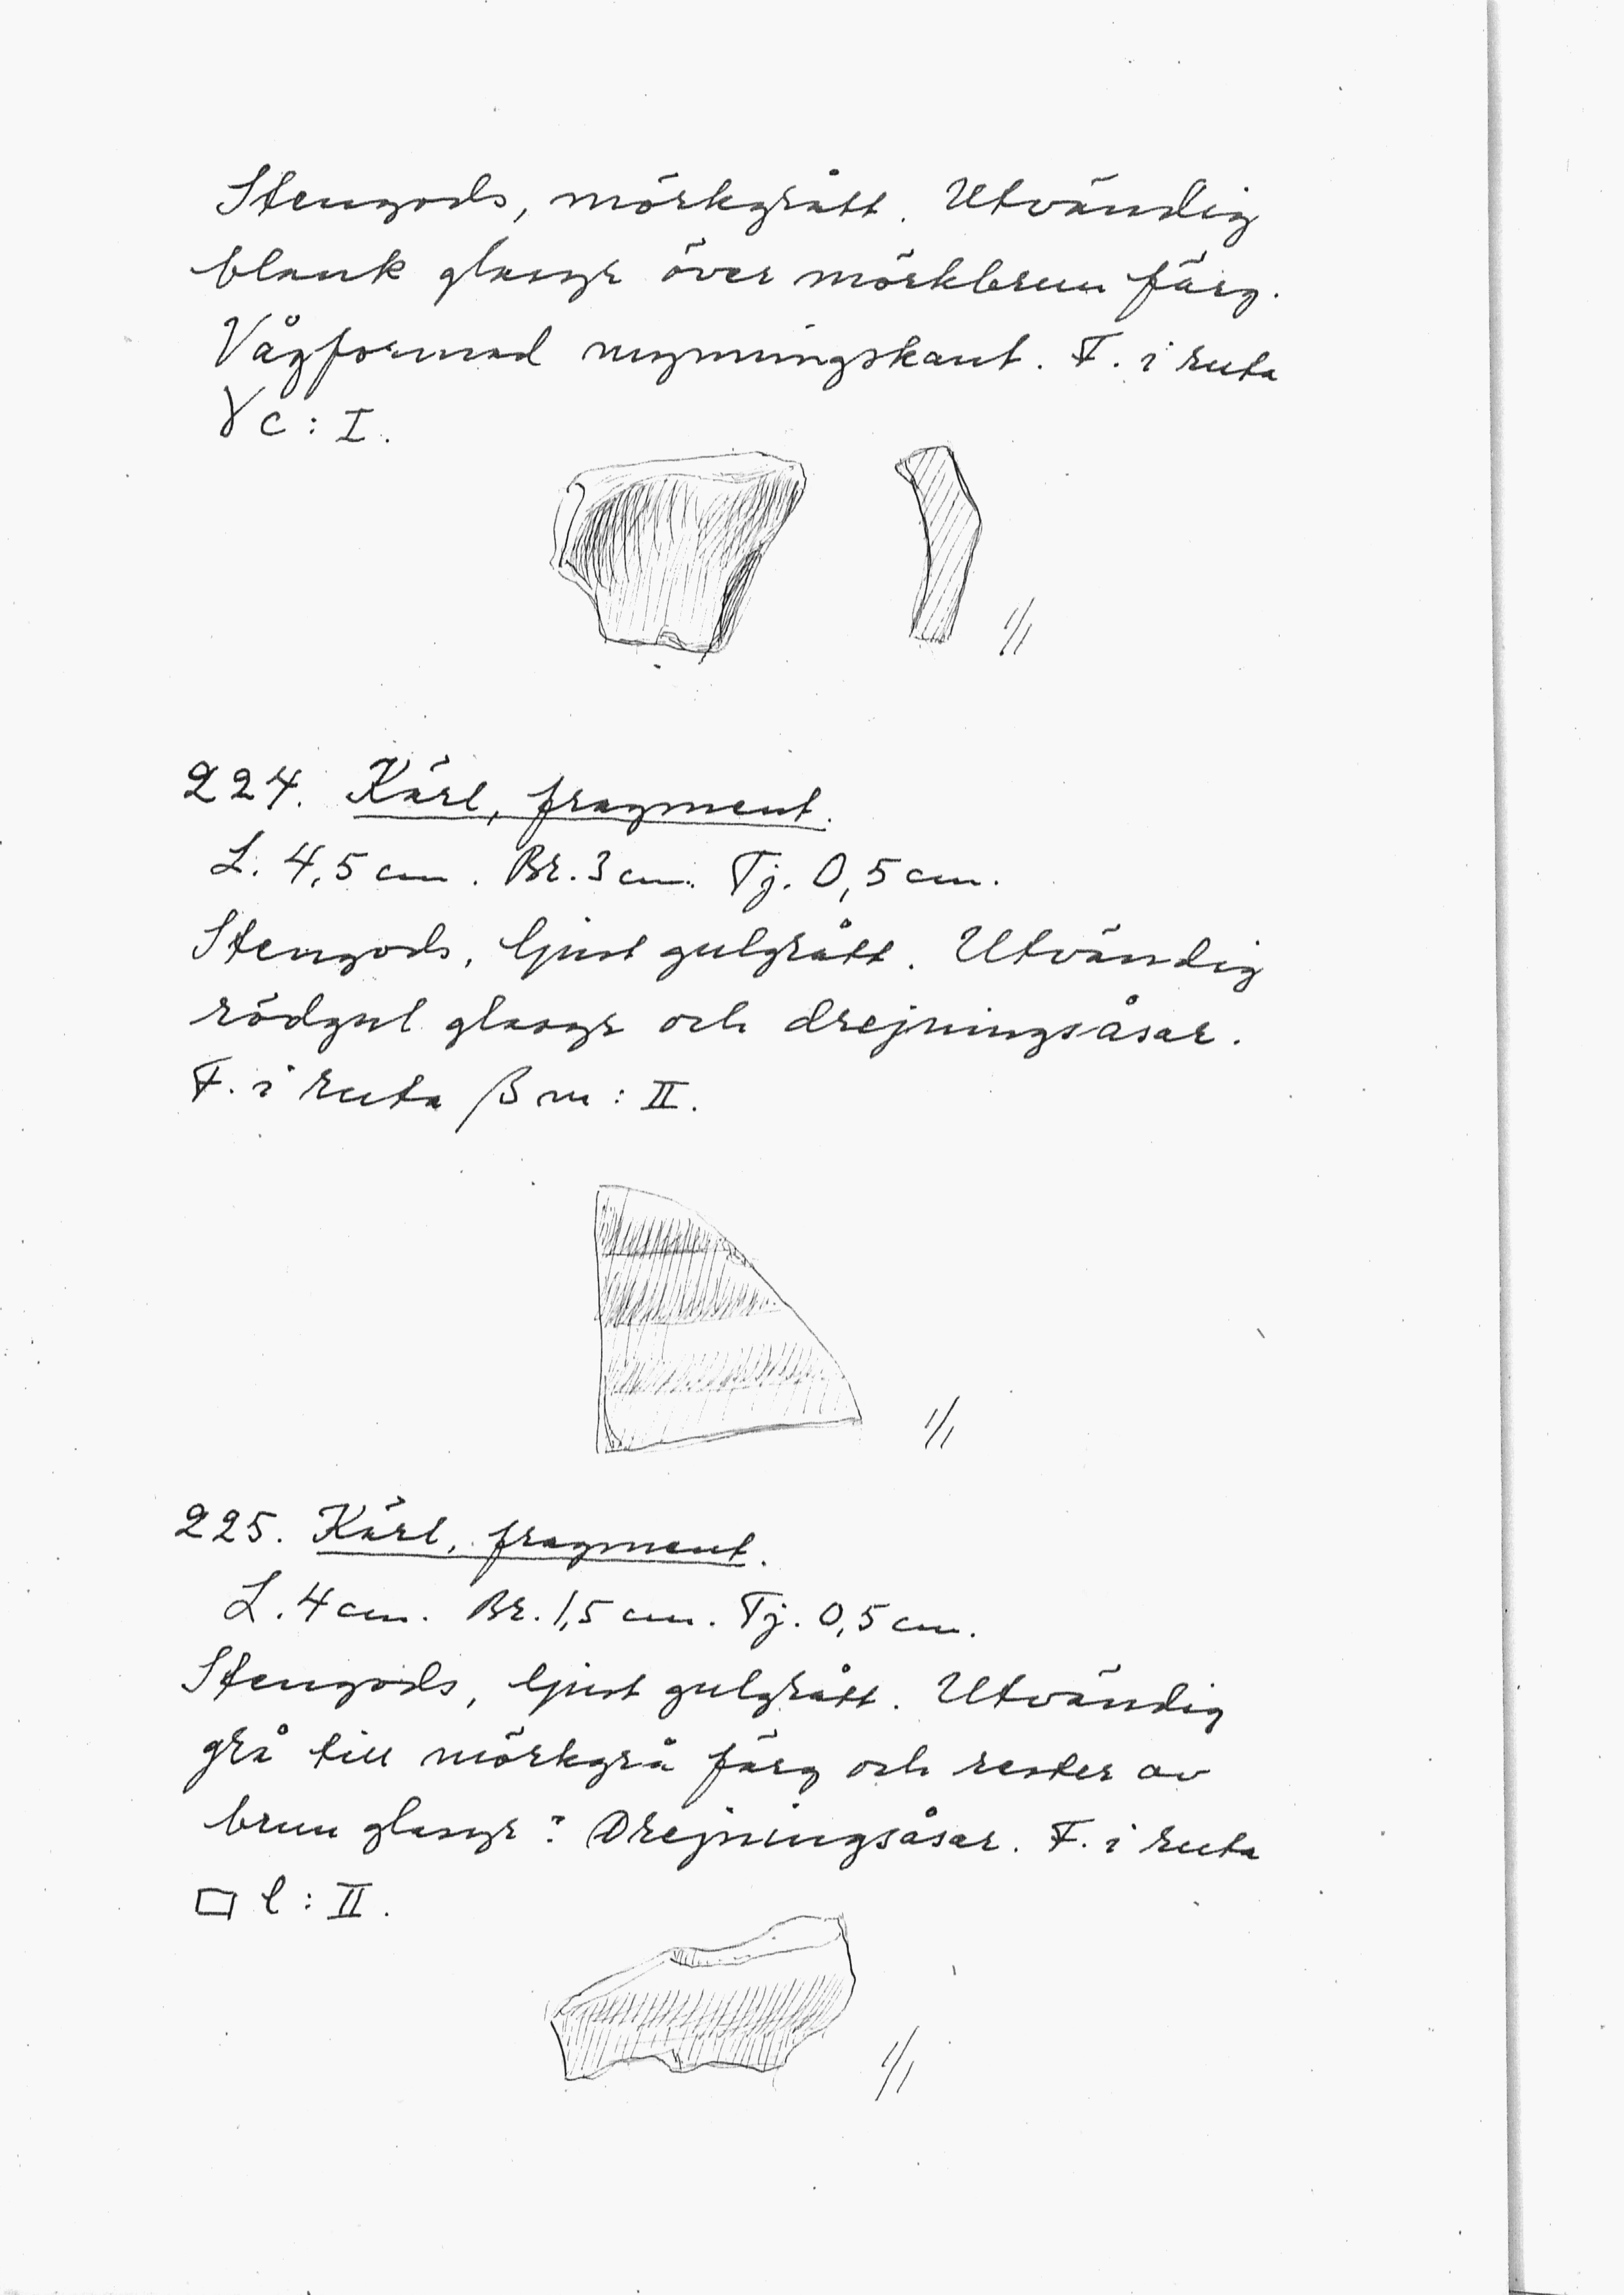 Stengods, mörkgrått. Utvändig
blank glasyr över mörkbrun färg.
Vågformad mynningskant. F. i ruta
γ c : I.
1/1
224. Kärl, fragment.
L. 4,5 cm. Br. 3 cm. Tj. 0,5 cm.
Stengods, ljust gulgrått. Utvändig
rödgul glasyr och drejningsåsar.
F. i ruta β m : II.
1/1
225. Kärl, fragment.
L. 4 cm. Br. 1,5 cm. Tj. 0,5 cm.
Stengods, ljust gulgrått. Utvändig
grå till mörkgrå färg och rester av
brun glasyr? Drejningsåsar. F. i ruta
□ l : II.
1/1